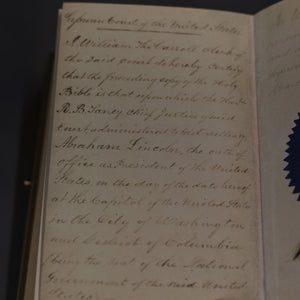 Supreme Court of the United States
I William Tho Carroll clerk of
the said court do hereby certify
that the preceding copy of the Holy
Bible is that upon which the Hon.
R. B. Taney Chief Justice of said
court administered to his Excellency
Abraham Lincoln, the oath of
office as President of the United
States, on the day of the date hereof
at the Capitol of the United States
in the City of Washington
and District of Columbia
being the seat of the National
Government of the said United
States